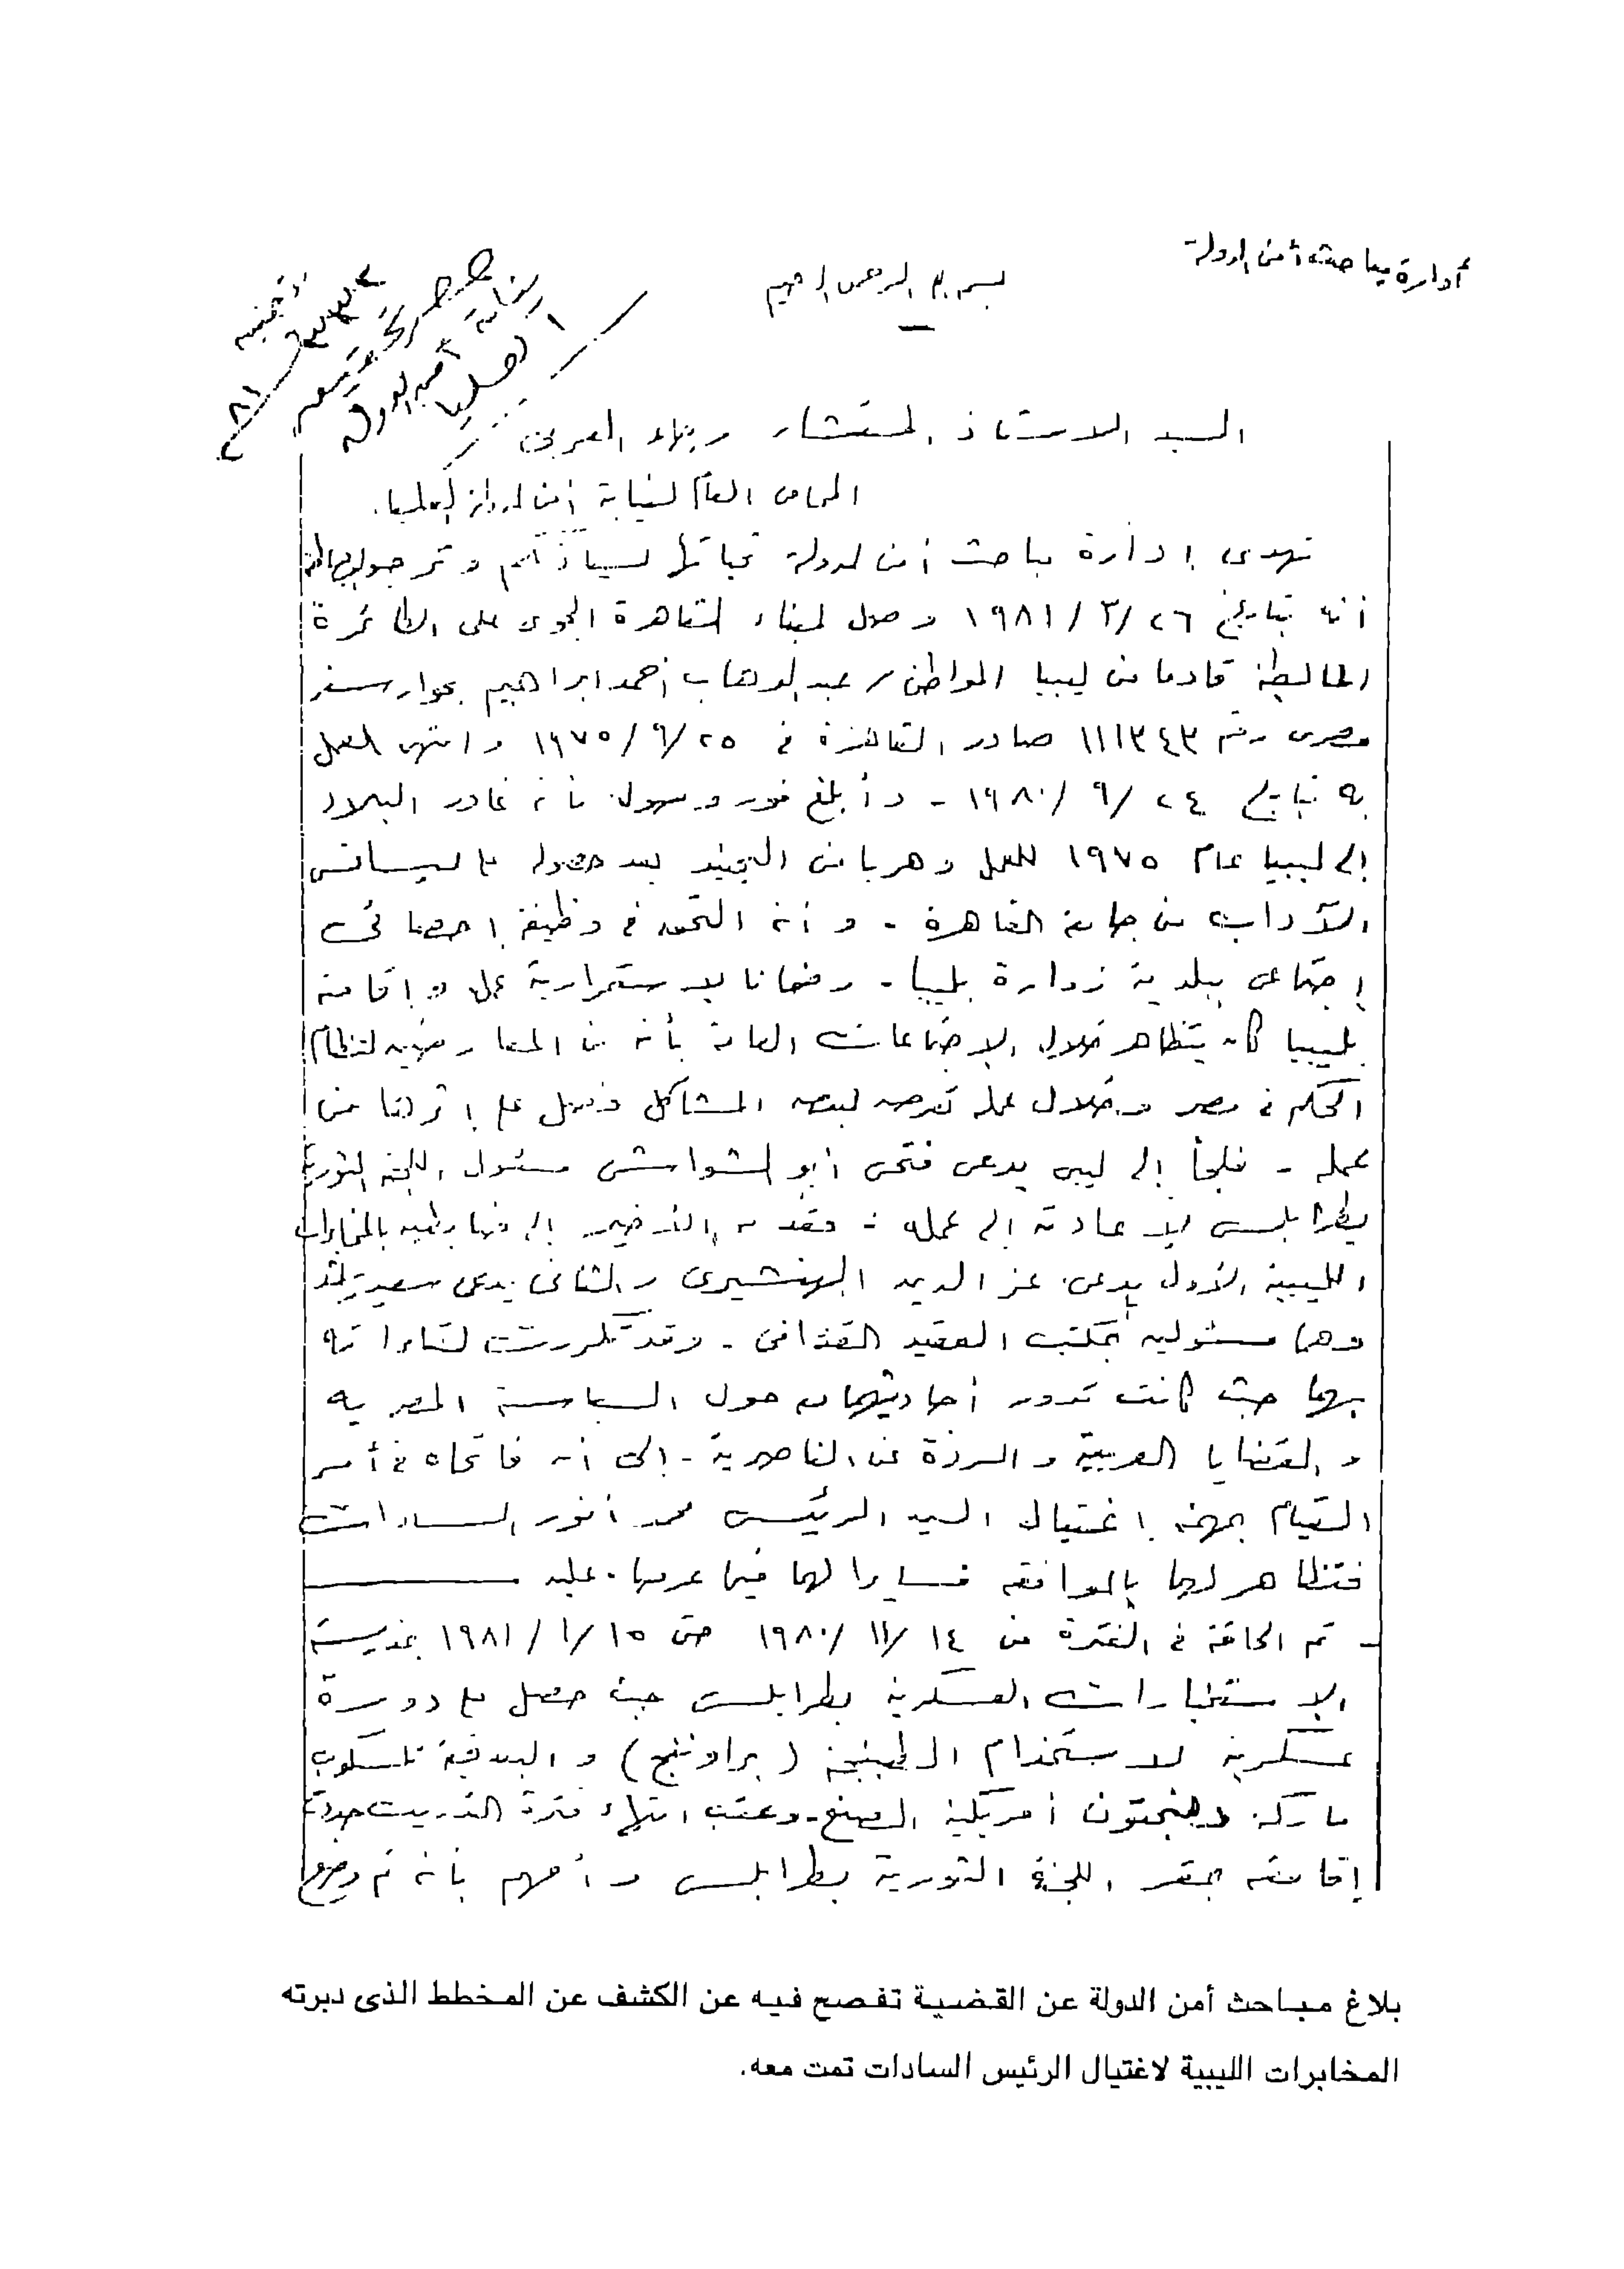 أدارة مباحث أمن الدولة
بسم الله الرحمن الرحيم
السيد الاستاذ المستشار رجاء العربى
المحامى العام لنيابة أمن الدولة العليا.
تهدى إدارة مباحث أمن الدولة تحياتها لسيادتكم وترجو
أنه بتاريخ ٢٦/٣/١٩٨١ وصل لميناء القاهرة الجوى على الطائرة
المالطية قادما من ليبيا المواطن / عبد الوهاب أحمد ابراهيم بجواز سفر
مصرى رقم ١١١٣٤٣ صادر القاهرة فى ٢٥/٩/١٩٧٥ وانتهى العمل
به بتاريخ ٢٤/٩/١٩٨٠ - وأبلغ فور وصوله بأنه غادر البلاد
إلى ليبيا عام ١٩٧٥ للعمل وهربا من التجنيد بعد حصوله على ليسانس
الآداب من جامعة القاهرة - وأنه التحق فى وظيفة إحصائى
إجتماعى ببلدية زوارة بليبيا - وضمانا لاستمرارية عمله وإقامته
بليبيا كان يتظاهر خلال الاجتماعات العامة بأنه من المعارضين لنظام
الحكم فى مصر وخلال عمله تعرض لبعض المشاكل وفصل على إثرها من
عمله - فلجأ إلى ليبى يدعى فتحى أبو الشواشى مسئول اللجنة الثورية
بطرابلس لإعادته إلى عمله - فقدمه الأخير إلى ضابطين بالمخابرات
الليبية الأول يدعى عز الدين الهنشيرى والثانى يدعى سعيد راشد
وهما مسئولين بمكتب العقيد القذافى - وقد تكررت لقاءاته
بهما حيث كانت تدور أحاديثهما حول السياسة المصرية
والقضايا العربية والردة عن الناصرية - إلى أن فاتحاه فى أمر
القيام بمهمة إغتيال السيد الرئيس محمد أنور السادات
فتظاهر لهما بالموافقة مسايرا لهما فيما عرضاه عليه
- تم الحاقه فى الفترة من ١٤/١١/١٩٨٠ حتى ١٥/١/١٩٨١ بمدرسة
الاستخبارات العسكرية بطرابلس حيث حصل على دورة
عسكرية لاستخدام الطبنجة (براوننج) والبندقية تلسكوب
ماركة ونجستون أمريكية الصنع - وعقب انتهاء فترة التدريب حددت
إقامته بمقر اللجنة الثورية بطرابلس وأفهم بأنه تم وضع
بلاغ مباحث أمن الدولة عن القضية تفصح فيه عن الكشف عن المخطط الذى دبرته
المخابرات الليبية لاغتيال الرئيس السادات تمت معه.